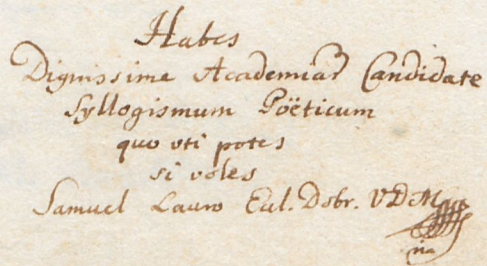 Habes
Dignissime Academiar Candidate
Syllogismum Poëticum
quo uti potes
si voles
Samuel Lauro Eccl. Dobr. VDM